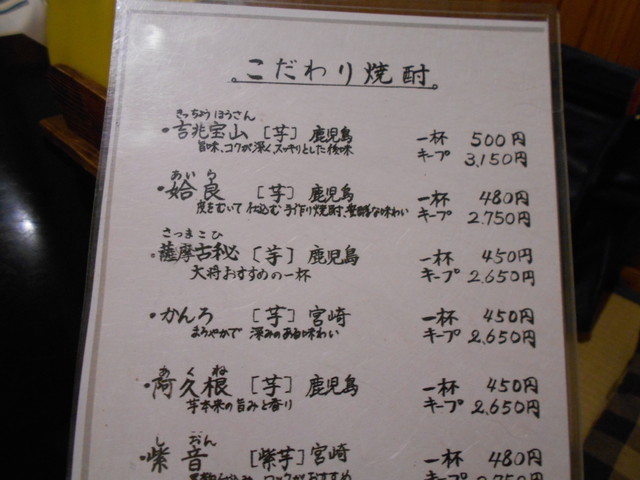 こだわり焼酎
きっちょうほうさん
・吉兆宝山 [芋] 鹿児島 一杯 500円
旨味、コクが深くスッキリとした後味 キープ 3,150円
あいら
・姶良 [芋] 鹿児島 一杯 480円
皮をむいて仕込む手作り焼酎、豊醇な味わい キープ 2,750円
さつまこひ
・薩摩古秘 [芋] 鹿児島 一杯 450円
大将おすすめの一杯 キープ 2,650円
・かんろ [芋] 宮崎 一杯 450円
まろやかで 深みのある味わい キープ 2,650円
あくね
・阿久根 [芋] 鹿児島 一杯 450円
芋本来の旨みと香り キープ 2,650円
しおん
・紫音 [紫芋] 宮崎 一杯 480円
ロックがおすすめ キープ 2,750円